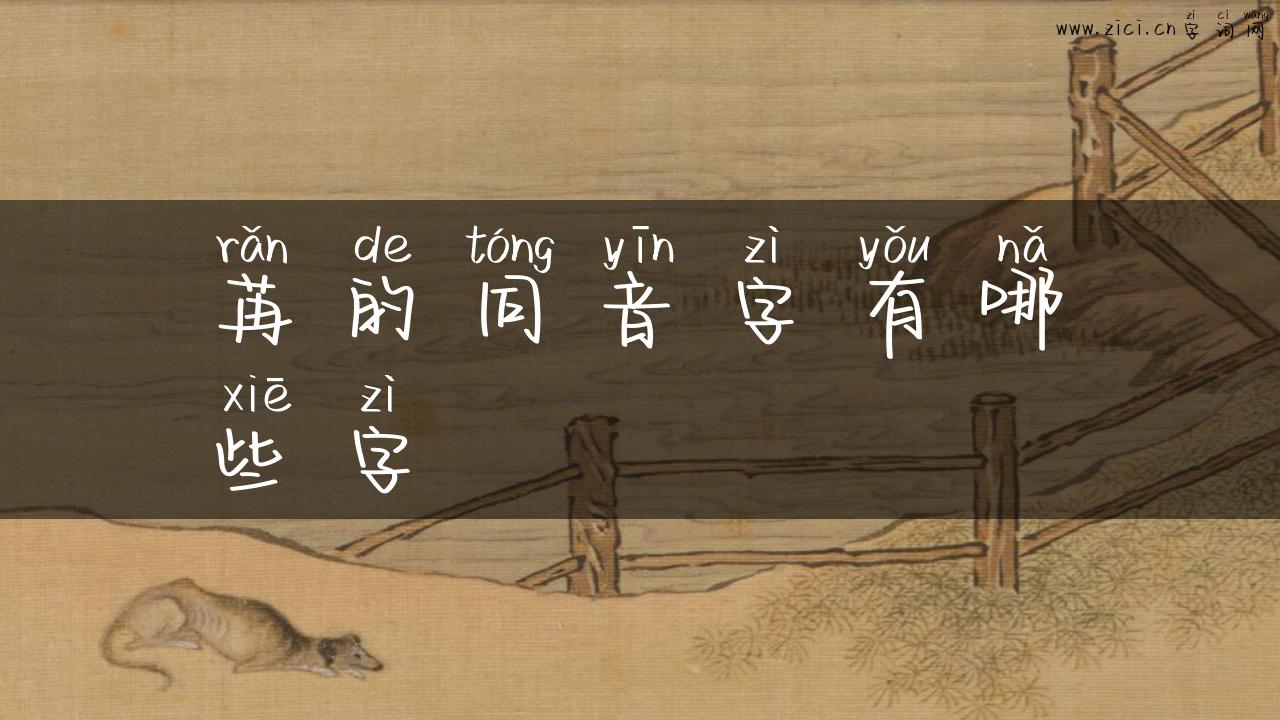 zi ci wang
www.zici.cn 字词网
rǎn de tóng yīn zì yǒu nǎ
苒的同音字有哪
xiē zì
些字